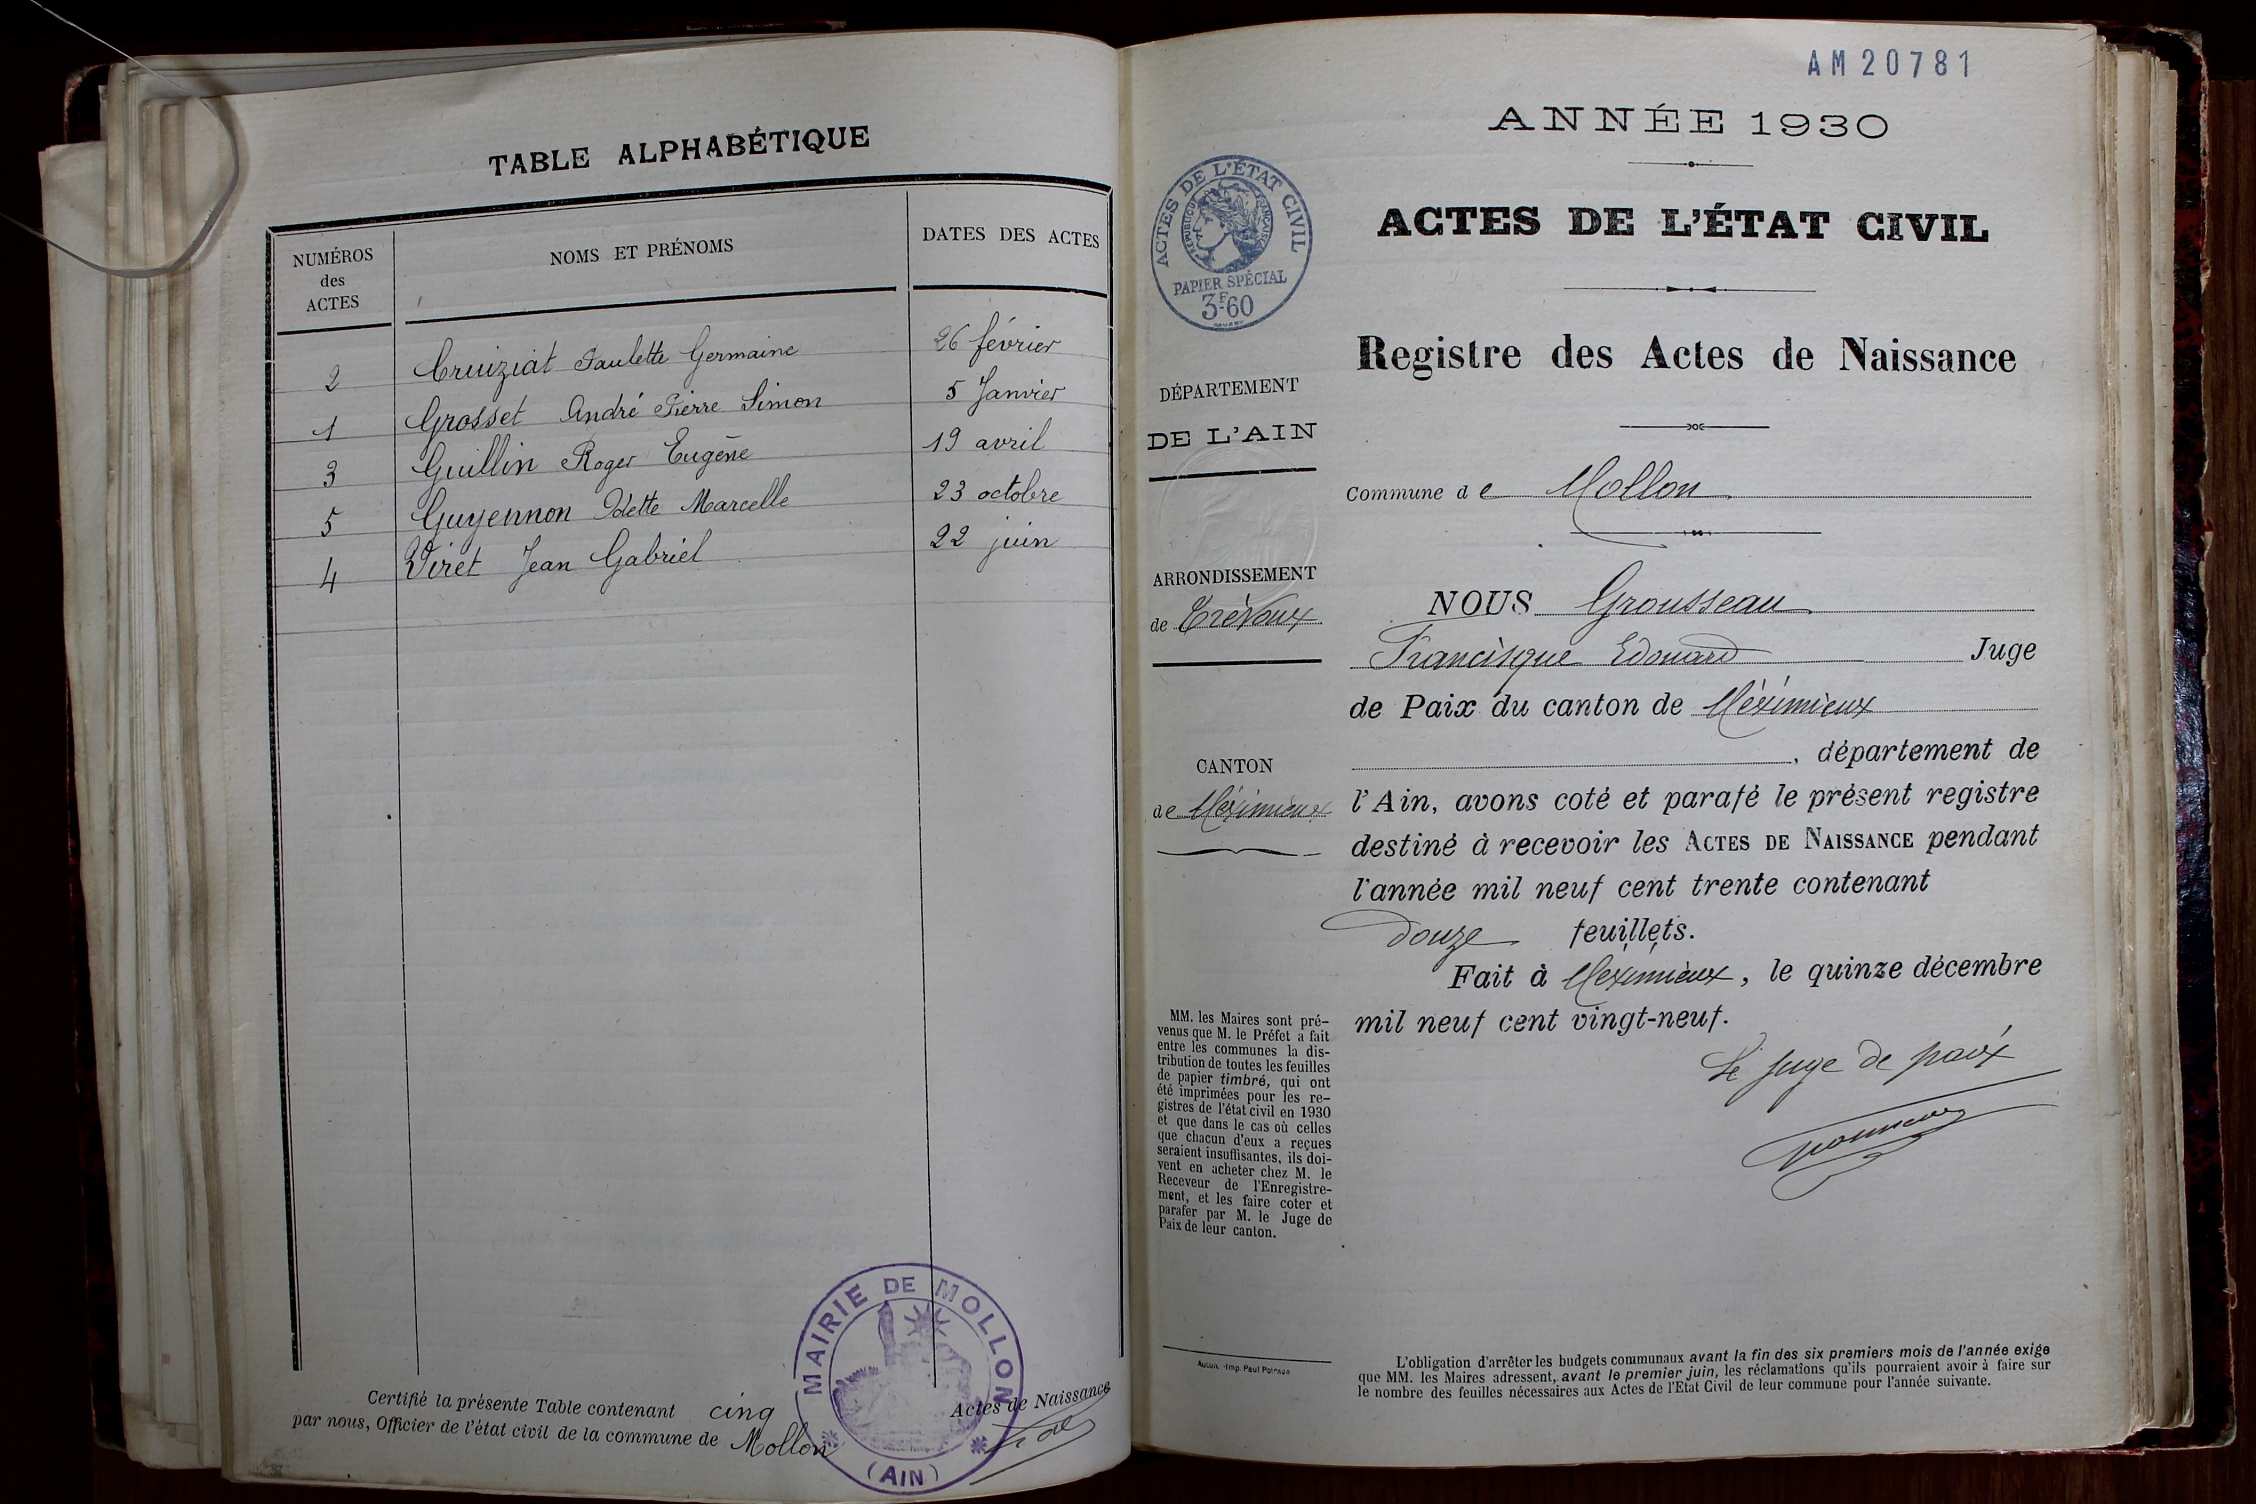 TABLE ALPHABÉTIQUE
NUMÉROS
des
ACTES
NOMS ET PRÉNOMS
DATES DES ACTES
2 Cruiziat Paulette Germaine 26 février
1 Grosset André Pierre Simon 5 Janvier
3 Guillin Roger Eugène 19 avril
5 Guyennon Odette Marcelle 23 octobre
4 Viret Jean Gabriel 22 juin
Certifié la présente Table contenant cinq Actes de Naissance
par nous, Officier de l'état civil de la commune de Mollon
MAIRIE DE MOLLON
(AIN)
AM20781
ANNÉE 1930
ACTES DE L'ÉTAT CIVIL
RÉPUBLIQUE FRANÇAISE
PAPIER SPÉCIAL
3F60
ACTES DE L'ÉTAT CIVIL
Registre des Actes de Naissance
DÉPARTEMENT
DE L'AIN
Commune de Mollon
ARRONDISSEMENT
de Trévoux
CANTON
de Méximieux
NOUS Grousseau
Francisque Edouard Juge
de Paix du canton de Méximieux
, département de
l'Ain, avons coté et parafé le présent registre
destiné à recevoir les ACTES DE NAISSANCE pendant
l'année mil neuf cent trente contenant
douze feuillets.
Fait à Meximieux, le quinze décembre
mil neuf cent vingt-neuf.
Le juge de paix
MM. les Maires sont pré-
venus que M. le Préfet a fait
entre les communes la dis-
tribution de toutes les feuilles
de papier timbré, qui ont
été imprimées pour les re-
gistres de l'état civil en 1930
et que dans le cas où celles
que chacun d'eux a reçues
seraient insuffisantes, ils doi-
vent en acheter chez M. le
Receveur de l'Enregistre-
ment, et les faire coter et
parafer par M. le Juge de
Paix de leur canton.
Imp. Paul
L'obligation d'arrêter les budgets communaux avant la fin des six premiers mois de l'année exige
que MM. les Maires adressent, avant le premier juin, les réclamations qu'ils pourraient avoir à faire sur
le nombre des feuilles nécessaires aux Actes de l'Etat Civil de leur commune pour l'année suivante.